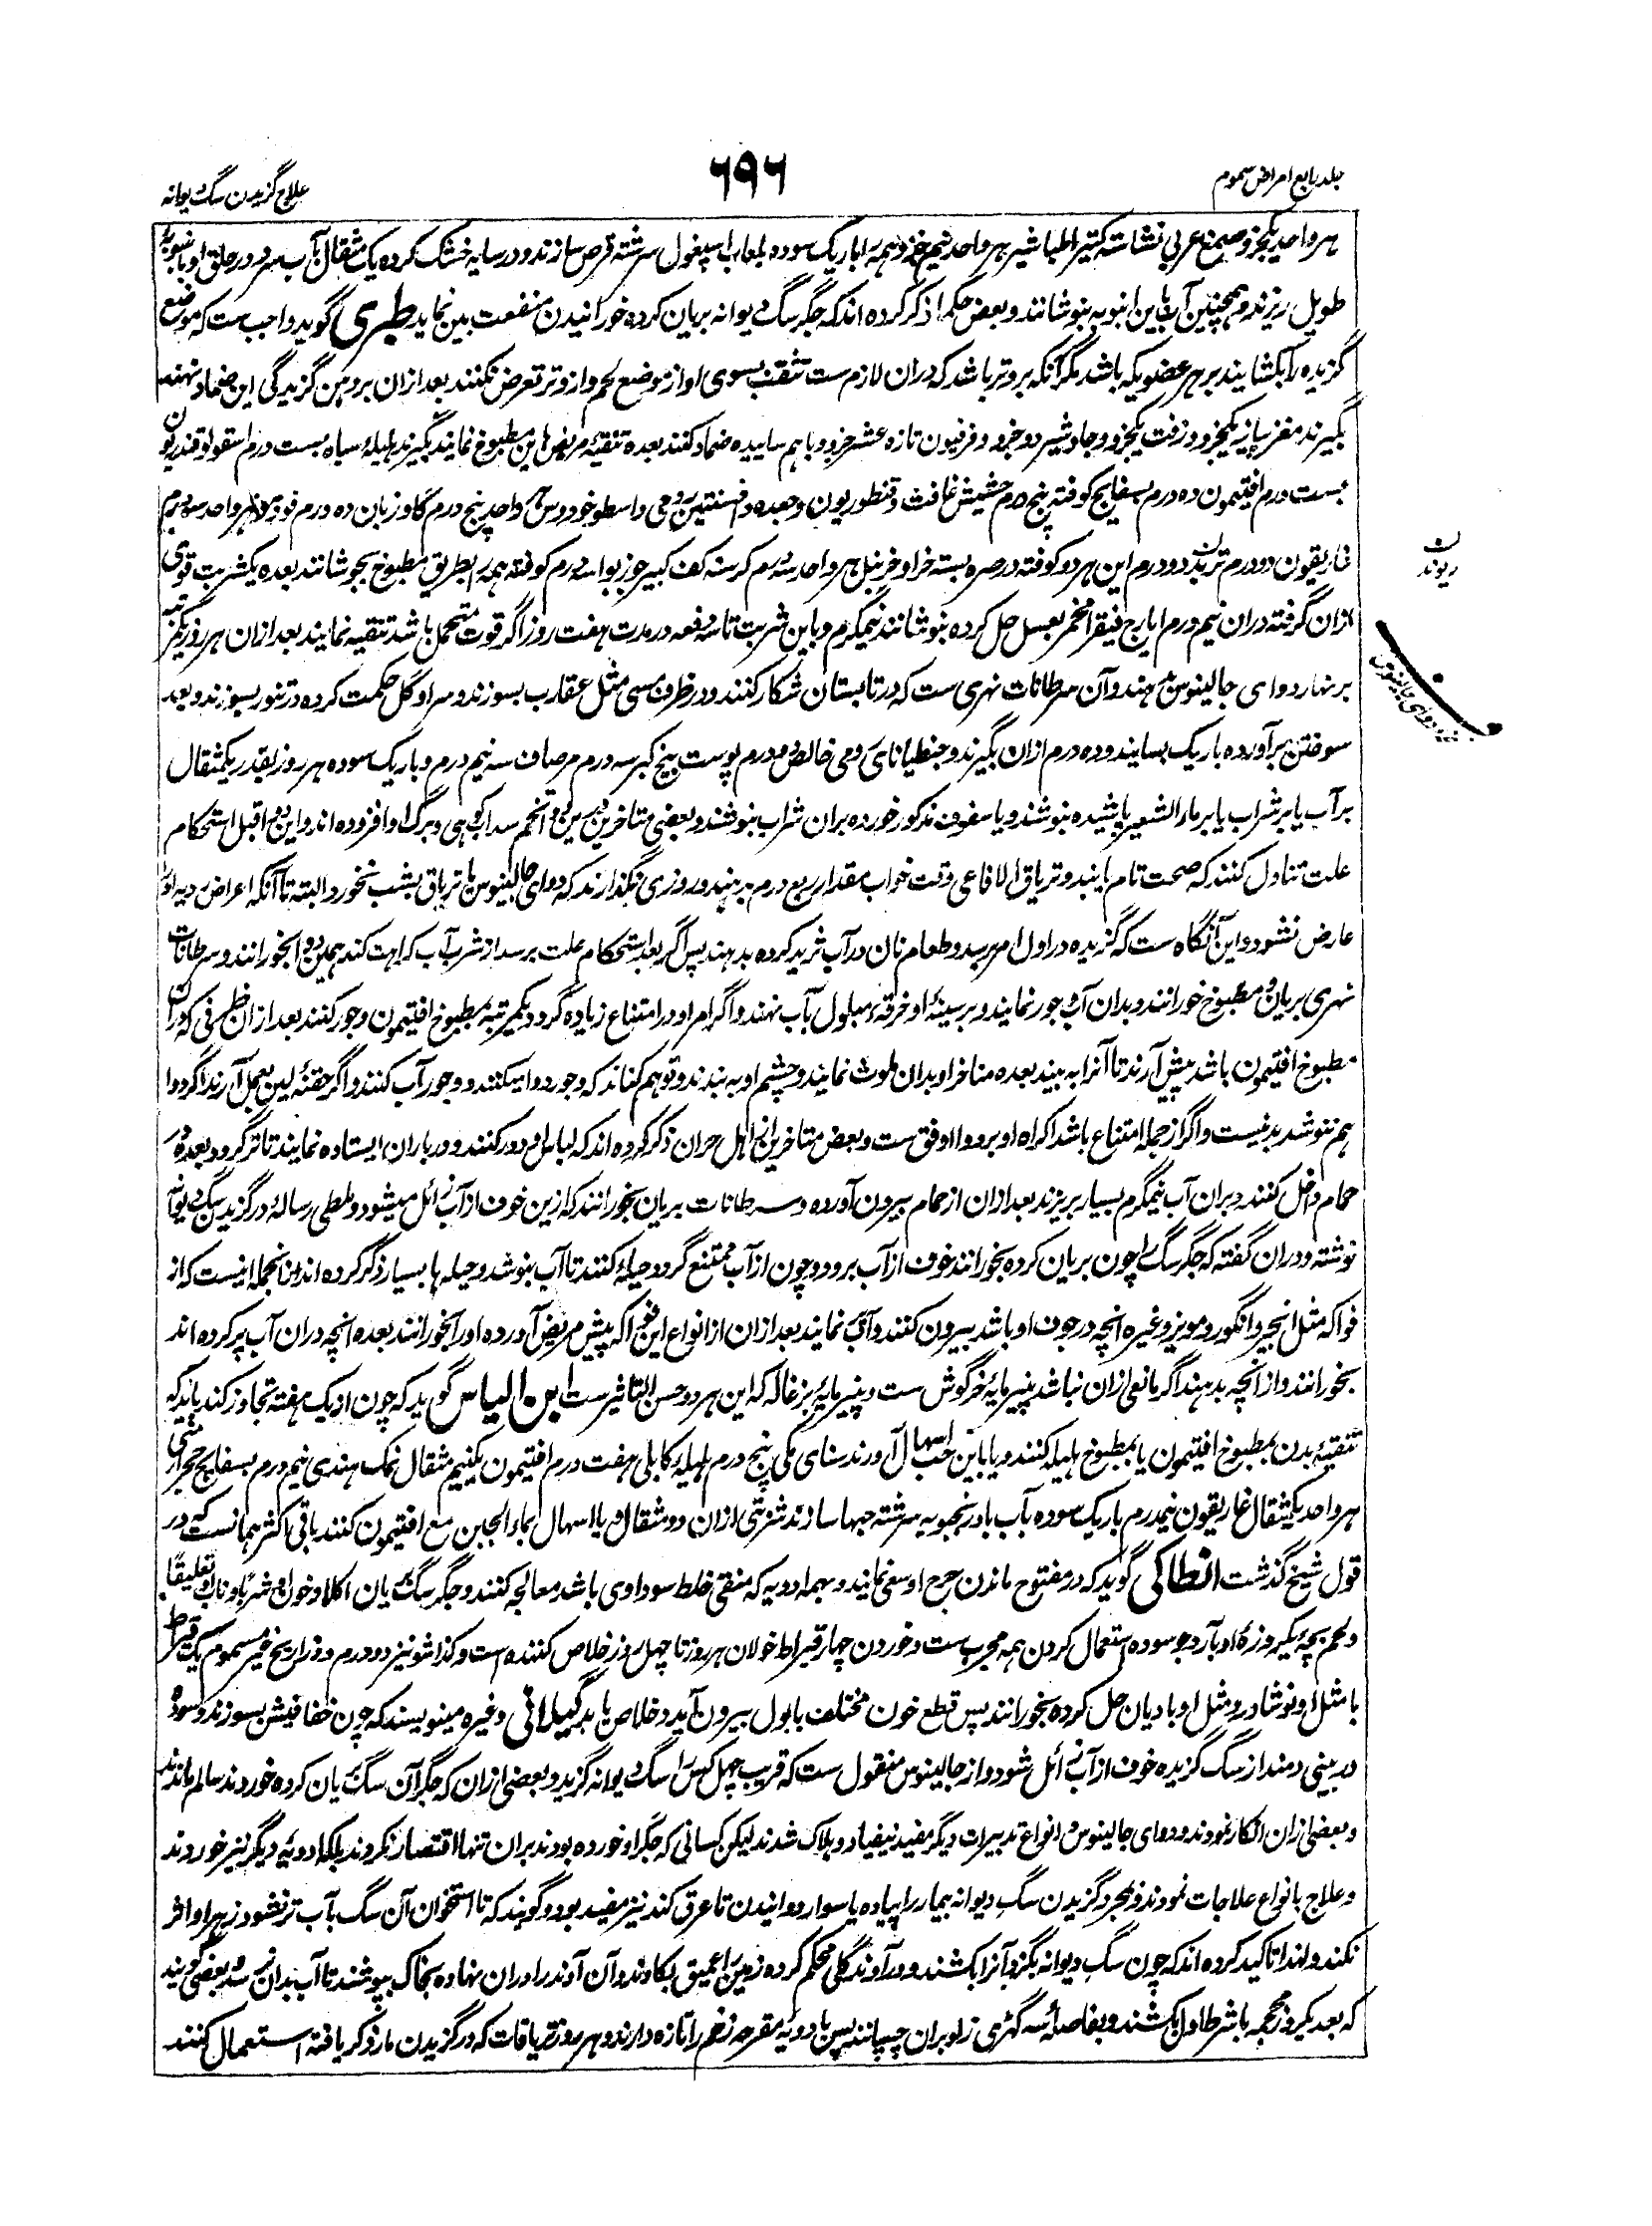 جلد رابع امراض سموم
۶۹۶
علاج گزیدن سگ دیوانه
هر واحد یکجزو صمغ عربی نشاسته کتیرا طباشیر هر واحد نیم جزو همه را باریک سوده بلعاب اسپغول سرشته قرص سازند و در سایه خشک کرده یک مثقال بآب سرد در حلق او بانبوبهٔ
طویل ریزند و همچنین آب باین انبوبه بنوشانند و بعض حکما ذکر کرده اند که جگر سگ دیوانه بریان کرده خورانیدن منفعت بین نماید طبری گوید واجب ست که موضع
گزیده را بکشایند بر هر عضویکه باشد مگر آنکه بر وتر باشد که دران لازم ست تثقف بسوی او از موضع لحم و از وتر تعرض نکنند بعد ازان بر دهن گزیدگی این ضماد نهند
بگیرند مغز پیاز یکجزو و زفت یکجزو و جاوشیر دو جزو و فرفیون تازه عشر جزو و باهم ساییده ضماد کنند بعده تنقیهٔ مریض باین مطبوخ نمایند بگیرند هلیلهٔ سیاه بست درم اسقولوقندریون
بست درم افتیمون ده درم بسفایج کوفته پنج درم حشیش غافث و قنطوریون و جعده و افسنتین رومی و اسطوخودوس هر واحد پنج درم گاوزبان ده درم هر واحد سه درم
غاریقون دو درم تربد دو درم این هر دو کوفته در صره بسته هر واحد سه درم کرسنه کف کبیر جوزبوا سه درم کوفته همه را بطریق مطبوخ بجوشانند بعده یکشربت قوی
ازان گرفته دران نیم درم ایارج فیقرا مخمر بعسل حل کرده بنوشانند نیمگرم و باین شربت تا سه دفعه در مدت هفت روز اگر قوت متحمل باشد تنقیه نمایند بعد ازان هر روز یکمرتبه
بر نهار دوای جالینوس بدهند و آن سرطانات نهری ست که در تابستان شکار کنند و در ظرف مسی مثل عقارب بسوزند و سر او گل حکمت کرده در تنور بسوزند و بعد
سوختن برآورده باریک بسایند و ده درم ازان بگیرند و جنطیانای رومی خالص دو درم پوست بیخ کبر سه درم مر صاف سه نیم درم و باریک سوده هر روز بقدر یکمثقال
بر آب یا بر شراب یا بر ماءالشعیر پاشیده بنوشند و یا سفوف مذکور خورده بران شراب بنوشند و بعضی متاخرین درین دوا تخم سداب کوهی و برگ او افزوده اند و این دوا قبل استحکام
علت تناول کنند که صحت تام یابند و تریاق الافاعی وقت خواب مقدار ربع درم بدهند و روزی نگذارند که دوای جالینوس یا تریاق بشب نخورد البته تا آنکه اعراض ردیه او را
عارض نشود و این آنگاه ست که گزیده در اول امر برسد و طعام نان در آب ثرید کرده بدهند پس اگر بعد استحکام علت برسد از شرب آب کراهت کند همین دوا بخورانند و سرطانات
نهری بریان و مطبوخ خورانند و بدان آب وجور نمایند و بر سینهٔ او خرقهٔ مبلول بآب نهند و اگر امر او در امتناع زیاده گردد یکمرتبه مطبوخ افتیمون وجور کنند بعد ازان ظرفی که دران
مطبوخ افتیمون باشد پیش آرند تا آنرا به بیند بعده مناخر او بدان ملوث نمایند و چشم او به بندند و توهم کنانند که وجور دوا میکنند و وجور آب کنند و اگر حقنهٔ لین بعمل آرند اگر دوا
هم ننوشد بد نیست و اگر از جمله امتناع باشد اکراه او بر دوا اوفق ست و بعض متاخرین از اهل حران ذکر کرده اند که لباس او دور کنند و در باران ایستاده نمایند تا تر گردد بعده در
حمام داخل کنند و بران آب نیمگرم بسیار بریزند بعد ازان از حمام بیرون آورده سرطانات بریان بخورانند که ازین خوف از آب زائل میشود و ملطی رسالهٔ در گزیدن سگ دیوانه
نوشته و دران گفته که جگر سگ را چون بریان کرده بخورانند خوف از آب برود و چون از آب ممتنع گردد حیله کنند تا آب بنوشد و حیله ها بسیار ذکر کرده اند ازانجمله اینست که از
فواکه مثل انجیر و انگور و مویز و غیره انچه در جوف او باشد بیرون کنند و آب پر نمایند بعد ازان از انواع این فواکه پیش مریض آورده او را بخورانند بعده انچه دران آب پر کرده اند
بخورانند و از انچه بدهند اگر مانعی ازان نباشد پنیرمایهٔ خرگوش ست و پنیرمایهٔ بزغاله که این هر دو حسن التاثیر ست ابن الیاس گوید که چون از یک هفته تجاوز کند باید که
تنقیهٔ بدن بمطبوخ افتیمون یا بمطبوخ هلیله کنند و یا باین حب اسهال آورند سنای مکی پنج درم هلیلهٔ کابلی هفت درم افتیمون یکنیم مثقال نمک هندی نیم درم بسفایج حجر ارمنی
هر واحد یکمثقال غاریقون نیمدرم باریک سوده بآب بادرنجبویه سرشته حبها سازند شربتی ازان دو مثقال و یا اسهال بماء الجبن مع افتیمون کنند باقی اکثر همانست که در
قول شیخ گذشت انطاکی گوید که در مفتوح ماندن جرح او سعی نمایند و بهمه ادویه که منقی خلط سوداوی باشد معالجه کنند و جگر سگ بریان اکلا و خون او شربا و ناب او تعلیقا
و لحم بچهٔ یکروزهٔ او بآرد جو سوده استعمال کردن همه مجرب ست و خوردن چهار قیراط خولان هر روز تا چهل روز خلاص کننده است و کذا شونیز دو درم و ذراریح غیر مسموم یک قیراط
با مثل او نوشادر و مثل او بادیان حل کرده بخورانند پس قطع خون مختلف با بول بیرون آید و خلاص یابد گیلانی و غیره مینویسند که چون خفافیش بسوزند و سوده
در بینی دمند از سگ گزیده خوف از آب زائل شود و از جالینوس منقول ست که قریب چهل کس را سگ دیوانه گزید و بعضی ازان که جگر آن سگ بریان کرده خوردند سالم ماندند
و بعضی ازان انکار نمودند و دوای جالینوس و انواع تدبیرات دیگر مفید نیفتاد و هلاک شدند لیکن کسانی که جگر او خورده بودند بران تنها اقتصار نکردند بلکه ادویهٔ دیگر نیز خوردند
و علاج بانواع علاجات نمودند و بمجرد گزیدن سگ دیوانه بیمار را پیاده یا سوار دوانیدن تا عرق کند نیز مفید بود و گویند که تا استخوان آن سگ بآب تر نشود زهر او اثر
نکند و لهذا تاکید کرده اند که چون سگ دیوانه بگزد آنرا بکشند و در آوند گلی محکم کرده زمین را عمیق بکاوند و آن آوند را دران نهاده بخاک بپوشند تا آب بدان نرسد و بعضی گویند
که بعد یکروز محجمه با شرط اول بکشند و بفاصلهٔ سه گهڑی زلو بران چسپانند پس بادویهٔ مقرحه زخم را تازه دارند و هر روز تریاقات که در گزیدن مار ذکر یافته استعمال کنند
ن
ریوند
دوای جالینوس